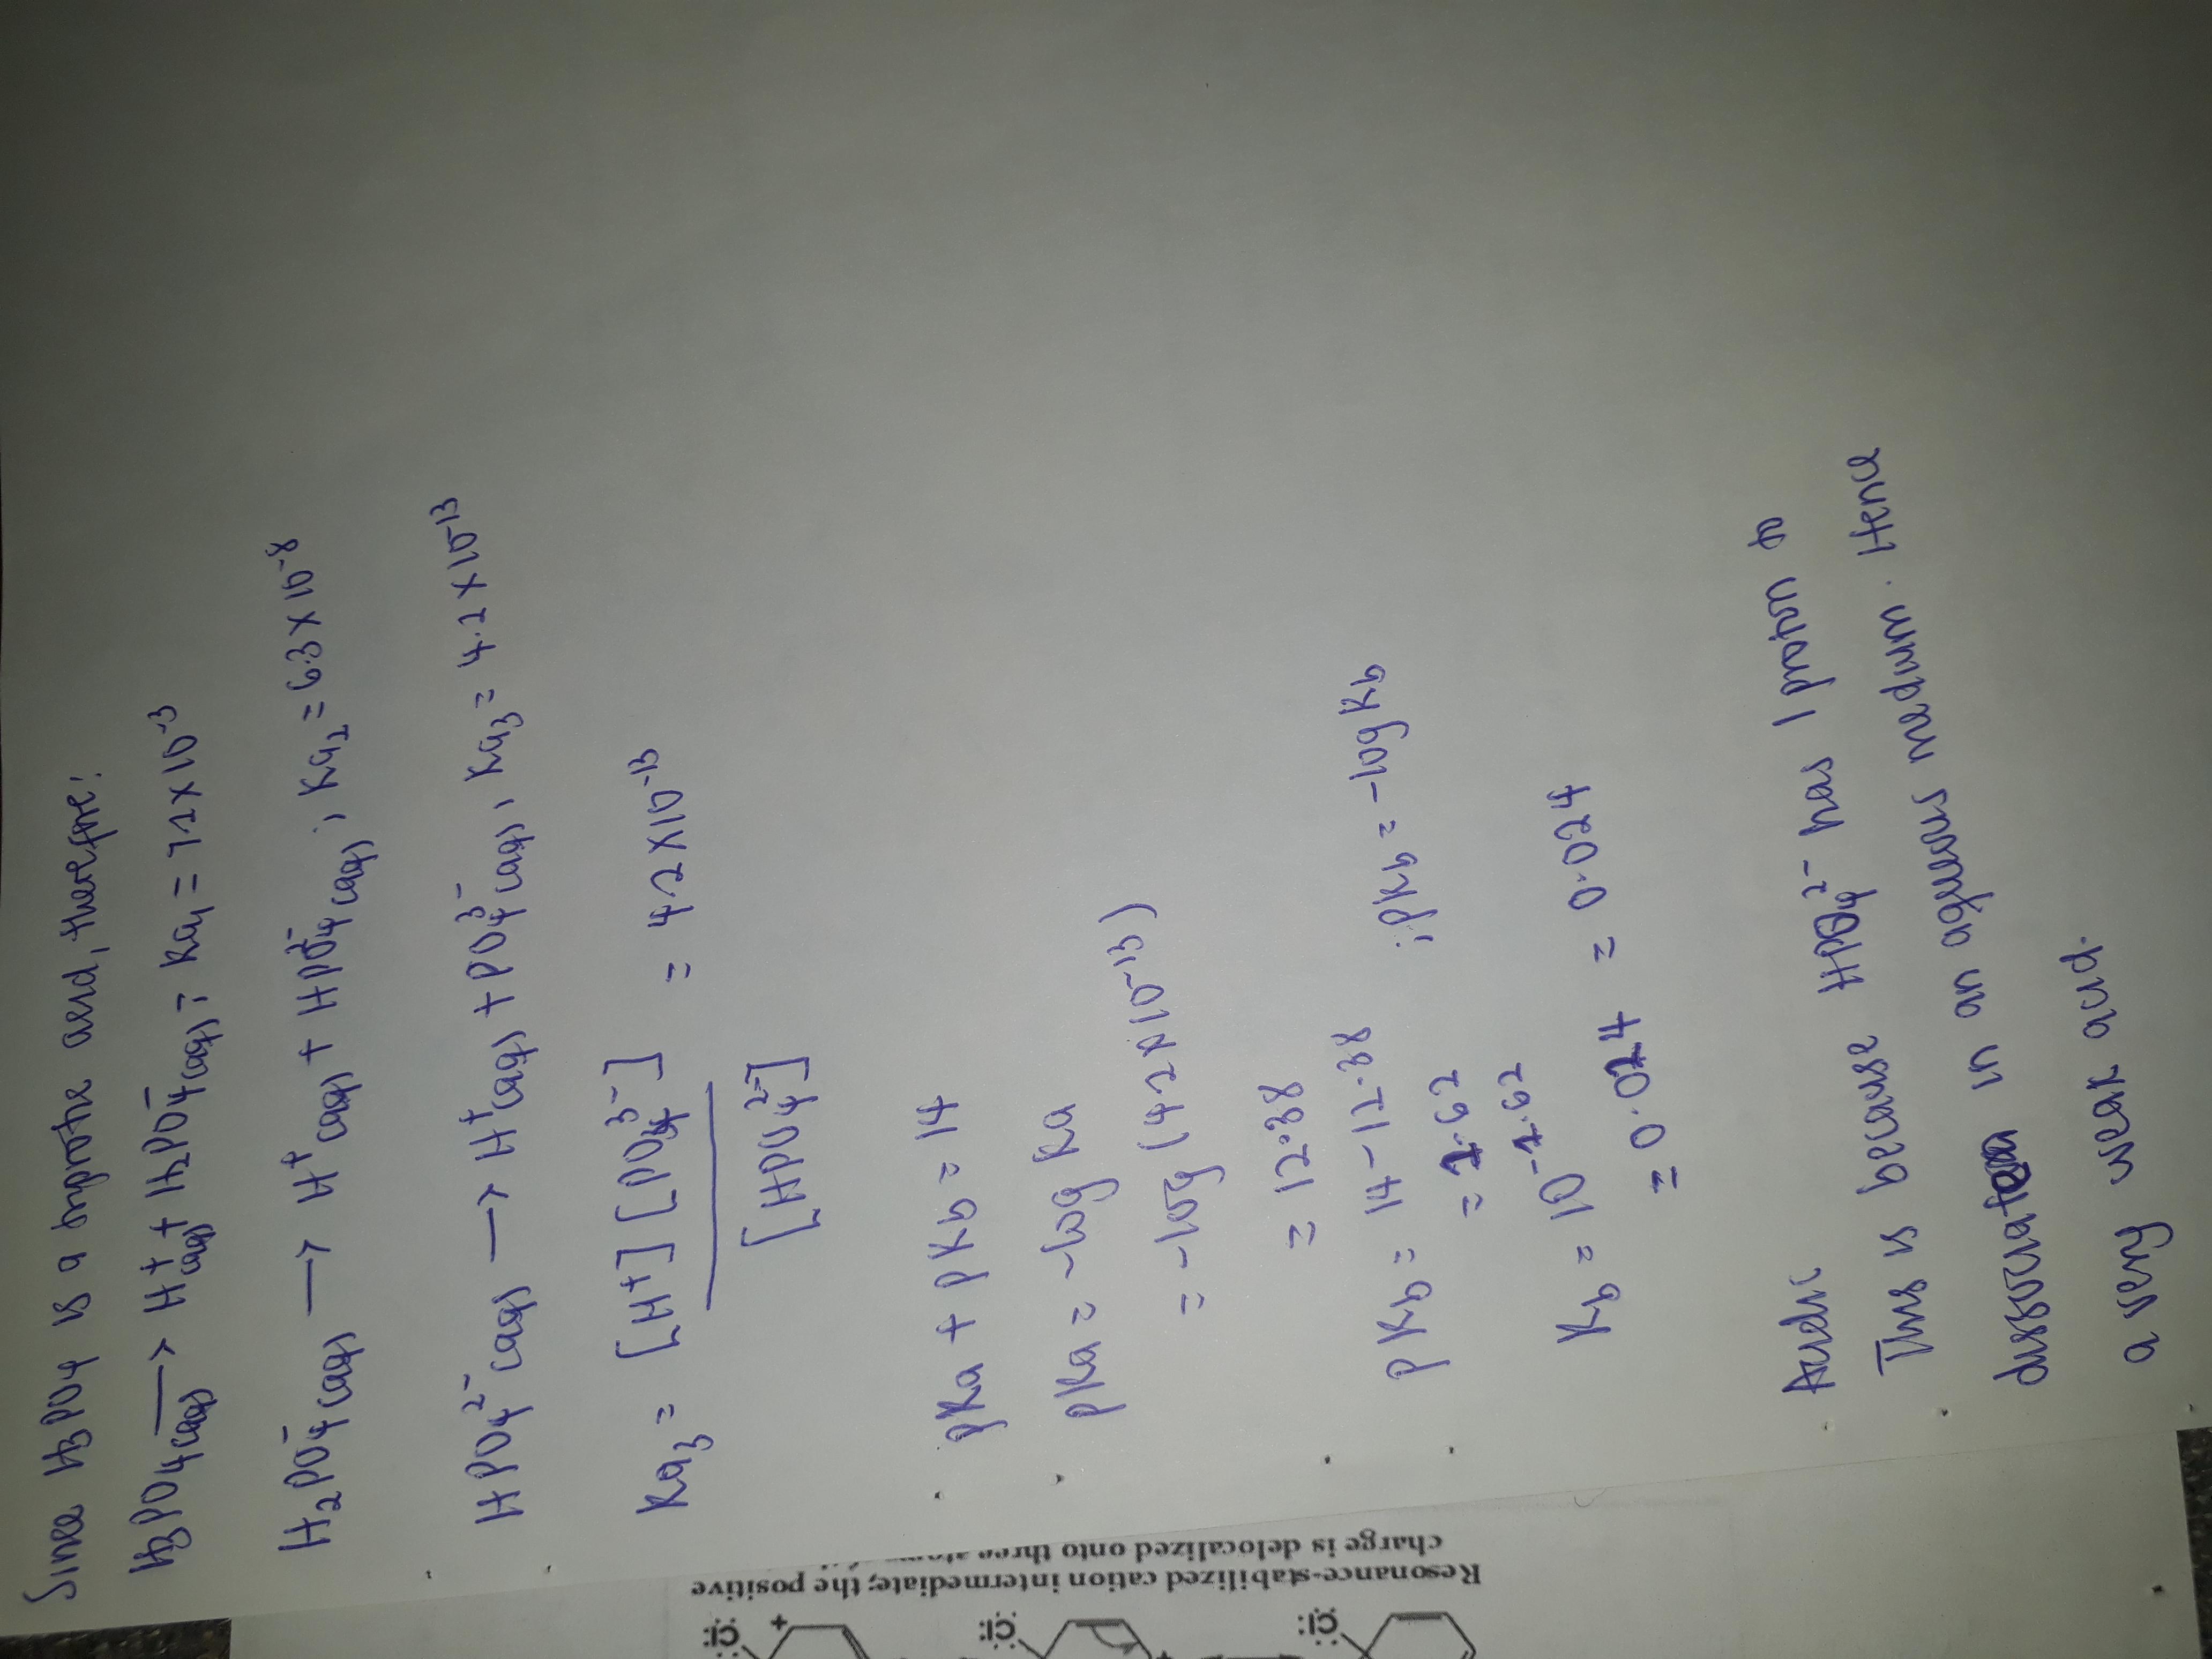 Since H3PO4 is a triprotic acid, therefore:
H3PO4(aq) → H+(aq) + H2PO4-(aq); Ka1 = 7.2 × 10-3
H2PO4-(aq) → H+(aq) + HPO42-(aq); Ka2 = 6.3 × 10-8
HPO42-(aq) → H+(aq) + PO43-(aq), Ka3 = 4.2 × 10-13
Ka3 = [H+] [PO43-] = 4.2 × 10-13
[HPO42-]
pKa + pKb = 14
pKa = -log Ka
= -log (4.2 × 10-13)
= 12.38
pKb = 14 - 12.38 ; pKb = -log Kb
= 1.62
Kb = 10-1.62
= 0.024 = 0.024
Acidic
This is because HPO42- has 1 proton to
dissociate in an aqueous medium. Hence
a very weak acid.
Resonance-stabilized cation intermediate; the positive
charge is delocalized onto three
:Cl: :Cl: :Cl:
+ +